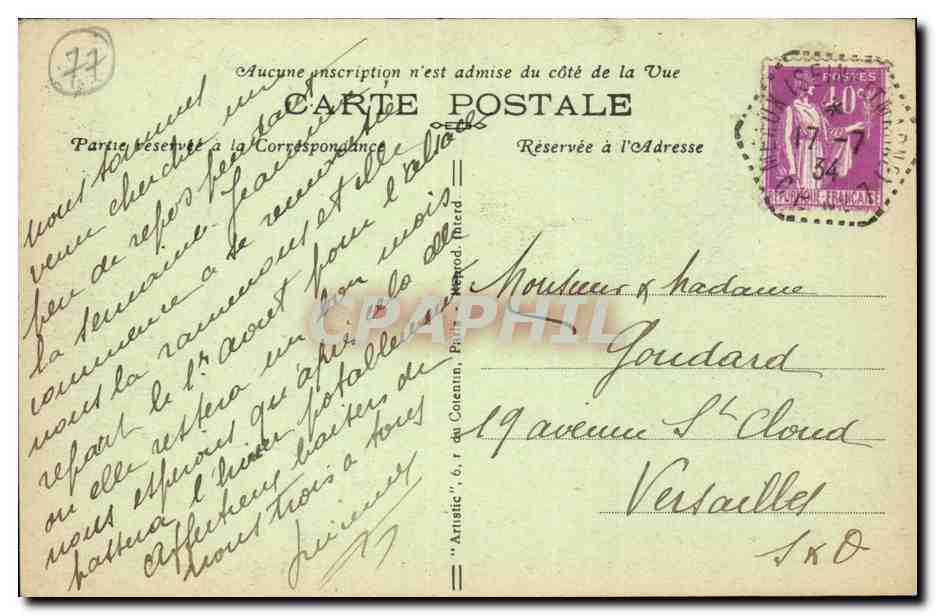 77
Aucune inscription n'est admise du côté de la Vue
CARTE POSTALE
Partie réservée à la Correspondance
Réservée à l'Adresse
POSTES
40c
17-7
34
REPUBLIQUE FRANCAISE
nous sommes
venu chercher un
peu de repos pendant
la semaine. Jeannine
commence a se remonter
nous la ramenons et elle
repart le 1er aout pour l'alsace
ou elle restera un bon mois
nous esperons qu'après cela elle
passera l'hiver potablement
Affectueux baisers de
nous trois a tous
Monsieur & Madame
Goudard
19 avenue St Cloud
Versailles
S & O
"Artistic", 6, r du Cotentin, Paris - Reprod. Interd.
CPAPHIL